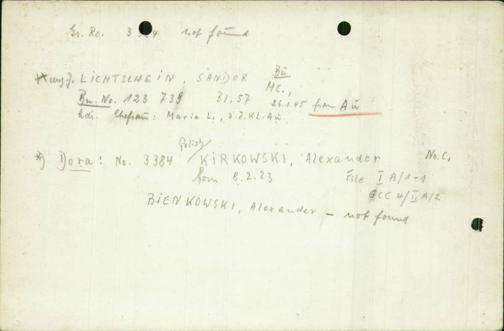 Gr. Ro. 3 4 not found
*) ung. J. LICHTSCHEIN, SANDOR Bü
Bu. No. 123 739 Bl. 57 MC.,
26.1.45 from Au
Adr. Ehefrau: Maria L.,
*) Dora: No. 3384 Polish KIRKOWSKI, Alexander No. C.
born 8.2.23 File I A/1-1
GCC 4/II A/2
BIENKOWSKI, Alexander – not found